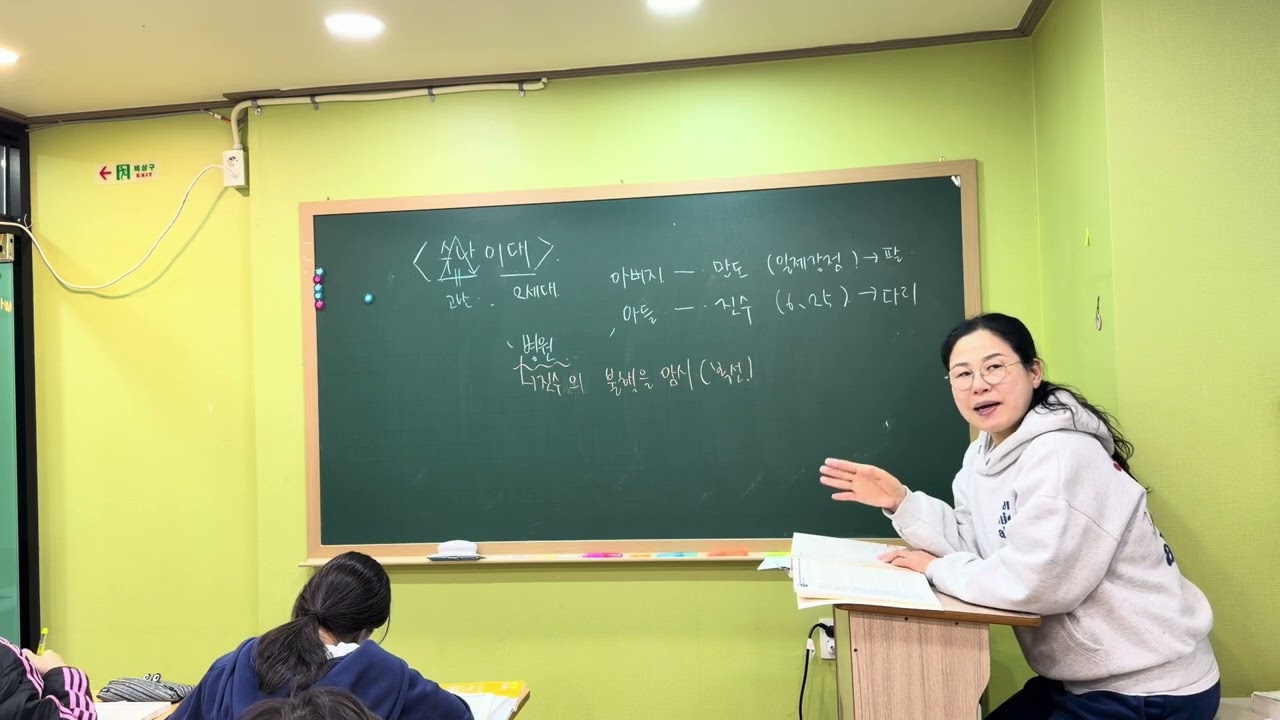 비상구
EXIT
<수난 이대>
고난 2세대
아버지 — 만도 (일제강점) → 팔
아들 — 진수 (6.25) → 다리
병원
진수의 불행을 암시 (복선)